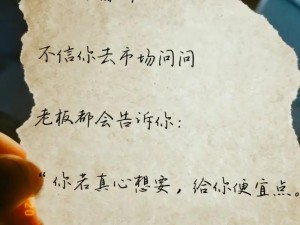 不信你去市场问问
老板都会告诉你：
“你若真心想要，给你便宜点。